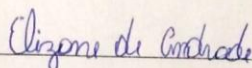 Elizone de Andrade